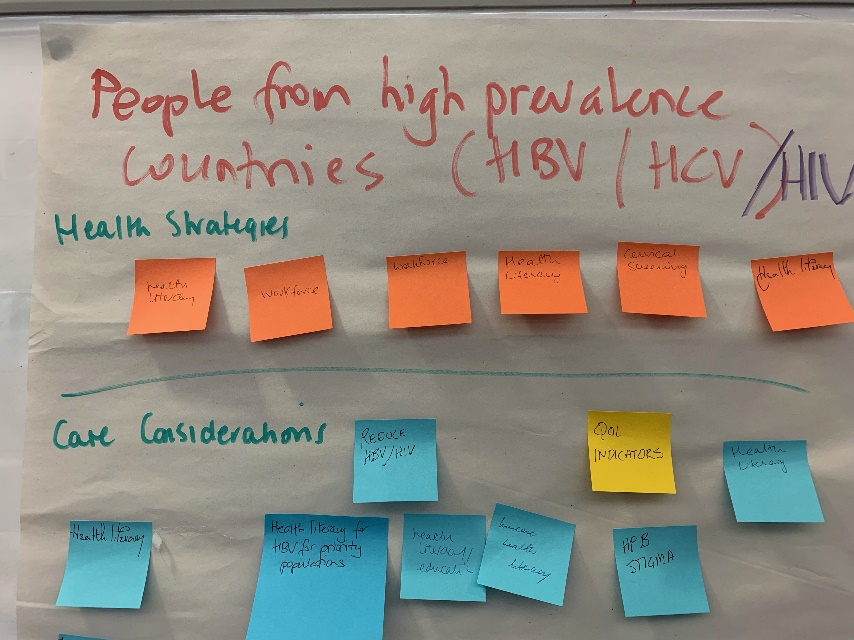 People from high prevalence
countries (HBV / HCV)/HIV
Health Strategies
Health
literacy
Workforce
Workforce
Health
Literacy
Cervical
Screening
Health literacy
Care Considerations
REDUCE
HBV/HIV
QOL
INDICATORS
Health
Literacy
Health literacy
Health literacy for
HBV for priority
populations
health
education
Increase
health
literacy
STIGMA